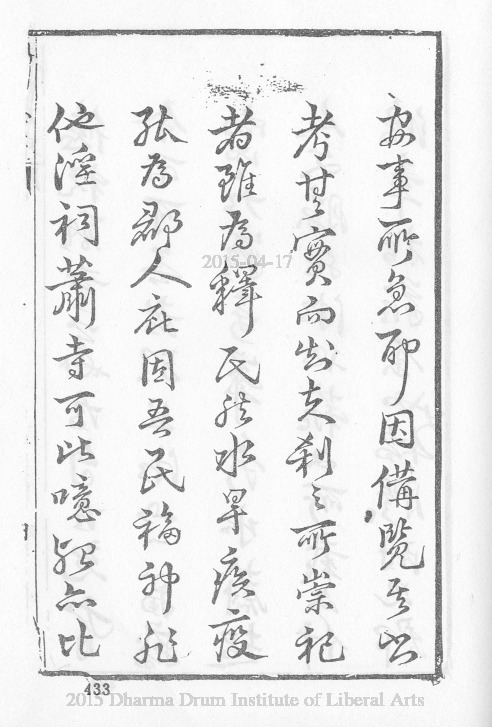 事所急耶因備覽其
考其實而知夫剎之所崇祀
者雖為釋氏然水旱疾疫
為郡人庇固吾民福神非
他淫祠蕭寺可比噫亦比
2015-04-17
433
2015 Dharma Drum Institute of Liberal Arts